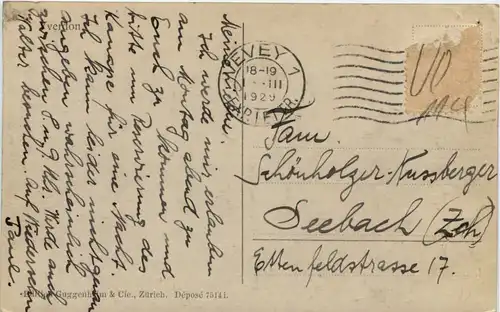 Yverdon.
Meine Lieben!
Ich werde mir erlauben
am Montag abend zu
Euch zu kommen und
bitte um Reservierung des
Kanape für eine Nacht.
Ich kann leider nicht genau
angeben wahrscheinlich
zwischen 8 u. 9 Uhr. Werde auch
Walter senden. Auf Wiedersehen
Paul.
VEVEY 1
18-19
III
1929
Fam.
Schönholzer-Nussberger
Seebach (Zch)
Ettenfeldstrasse 17.
Guggenheim & Cie., Zürich. Déposé 75141.